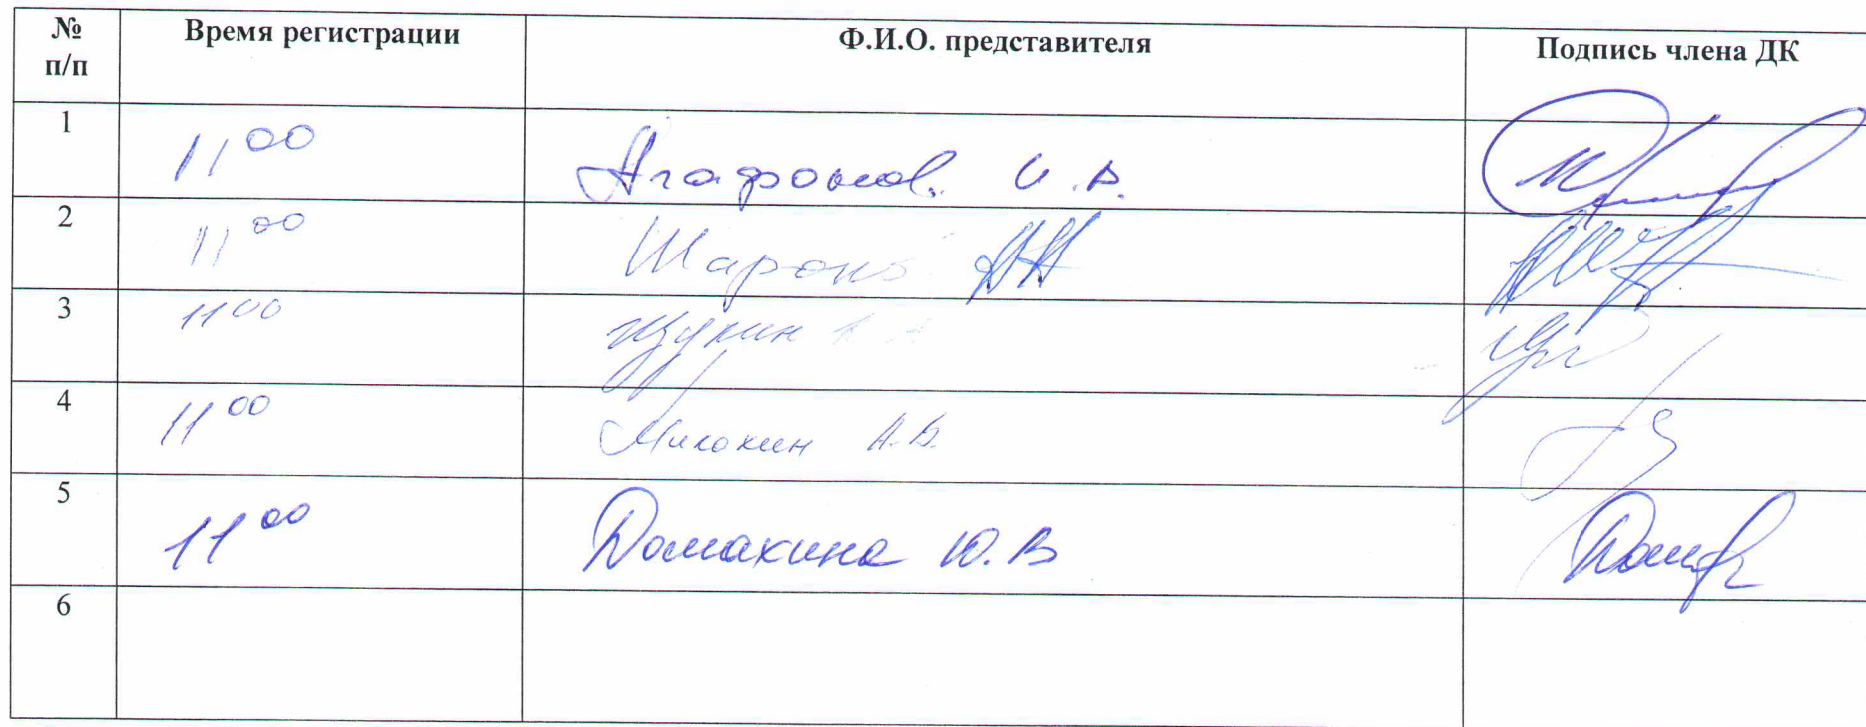 № п/п Время регистрации Ф.И.О. представителя Подпись члена ДК
1 11 00 Агафонов И.В.
2 11 00 Шаронов
3 11 00 Щукин
4 11 00 А.Б.
5 11 00 Домахина Ю.В
6